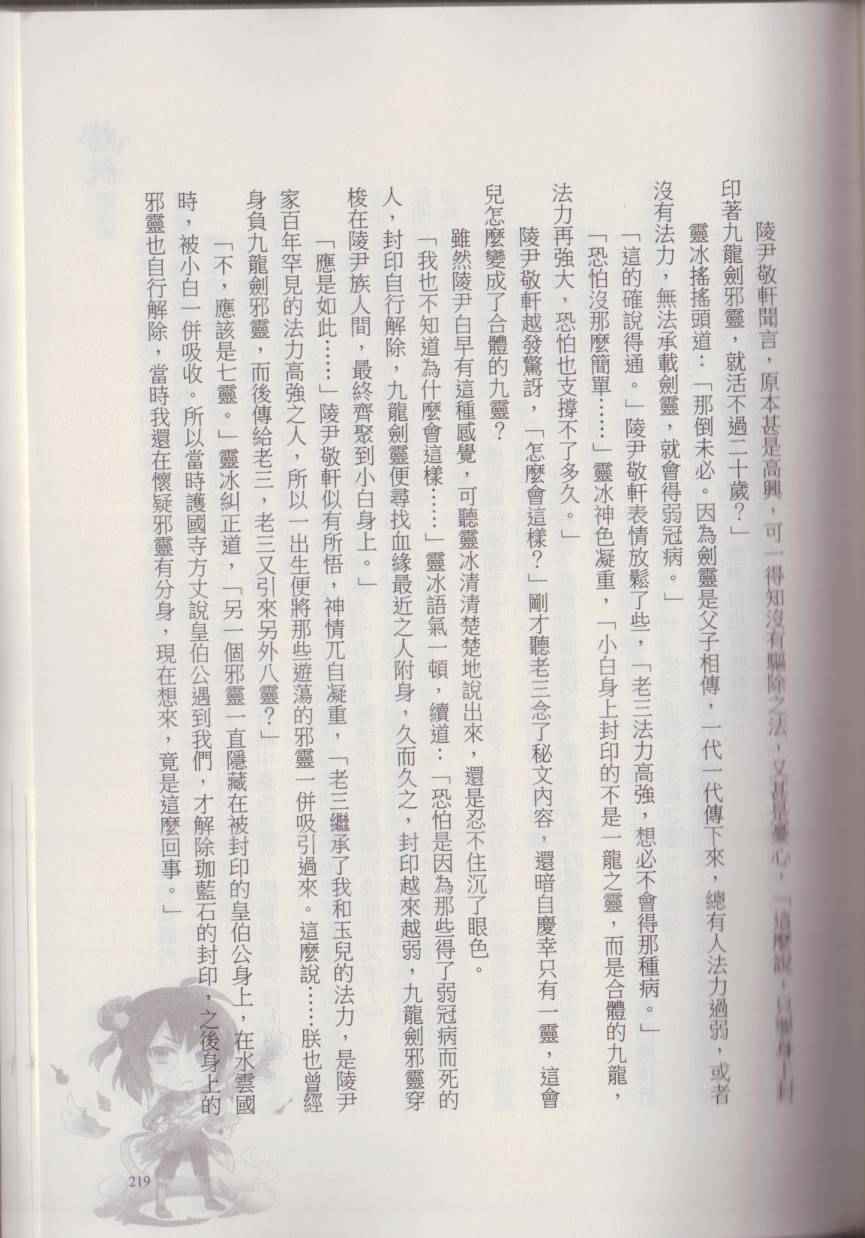 陵尹敬軒聞言，原本甚是高興，可一得知沒有驅除之法，又甚是憂心，「這麼說，只要身上封
印著九龍劍邪靈，就活不過二十歲？」
靈冰搖搖頭道：「那倒未必。因為劍靈是父子相傳，一代一代傳下來，總有人法力過弱，或者
沒有法力，無法承載劍靈，就會得弱冠病。」
「這的確說得通。」陵尹敬軒表情放鬆了些，「老三法力高強，想必不會得那種病。」
「恐怕沒那麼簡單……」靈冰神色凝重，「小白身上封印的不是一龍之靈，而是合體的九龍，
法力再強大，恐怕也支撐不了多久。」
陵尹敬軒越發驚訝，「怎麼會這樣？」剛才聽老三念了秘文內容，還暗自慶幸只有一靈，這會
兒怎麼變成了合體的九靈？
雖然陵尹白早有這種感覺，可聽靈冰清清楚楚地說出來，還是忍不住沉了眼色。
「我也不知道為什麼會這樣……」靈冰語氣一頓，續道：「恐怕是因為那些得了弱冠病而死的
人，封印自行解除，九龍劍靈便尋找血緣最近之人附身，久而久之，封印越來越弱，九龍劍邪靈穿
梭在陵尹族人間，最終齊聚到小白身上。」
「應是如此……」陵尹敬軒似有所悟，神情兀自凝重，「老三繼承了我和玉兒的法力，是陵尹
家百年罕見的法力高強之人，所以一出生便將那些遊蕩的邪靈一併吸引過來。這麼說……朕也曾經
身負九龍劍邪靈，而後傳給老三，老三又引來另外八靈？」
「不，應該是七靈。」靈冰糾正道，「另一個邪靈一直隱藏在被封印的皇伯公身上，在水雲國
時，被小白一併吸收。所以當時護國寺方丈說皇伯公遇到我們，才解除珈藍石的封印，之後身上的
邪靈也自行解除，當時我還在懷疑邪靈有分身，現在想來，竟是這麼回事。」
219